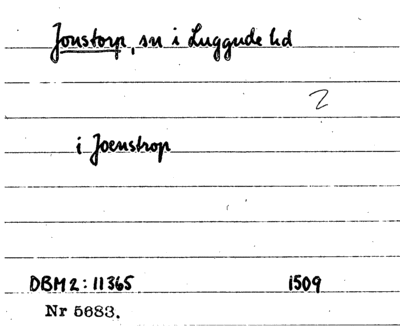 Jonstorp, sn i Luggude hd
2
i Joenstrop
DBM 2: 11365 1509
Nr 5683.